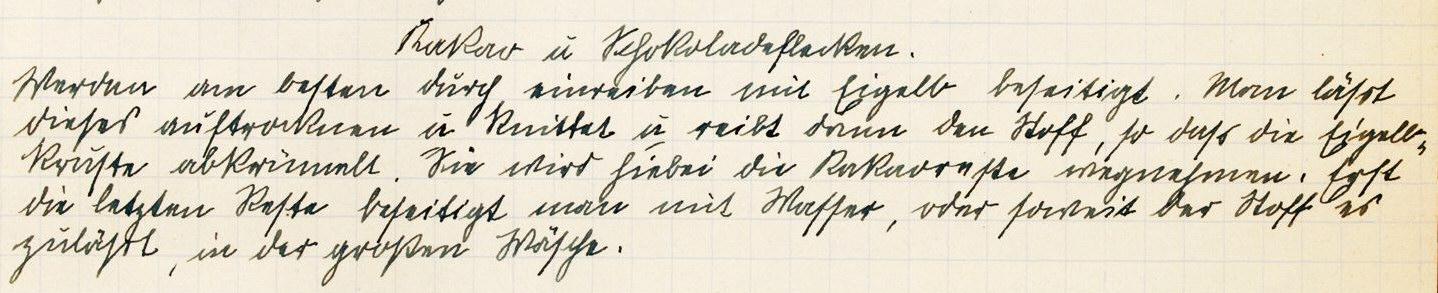 Kakao u Schokoladeflecken.
Werden am besten durch einreiben mit Eigelb beseitigt. Man lässt
dieses auftrocknen u knittet u reibt dann den Stoff, so dass die Eigelb-
kruste abkrümelt. Sie wird hiebei die Kakaoreste wegnehmen. Erst
die letzten Reste beseitigt man mit Wasser, oder soweit der Stoff es
zulässt, in der großen Wäsche.